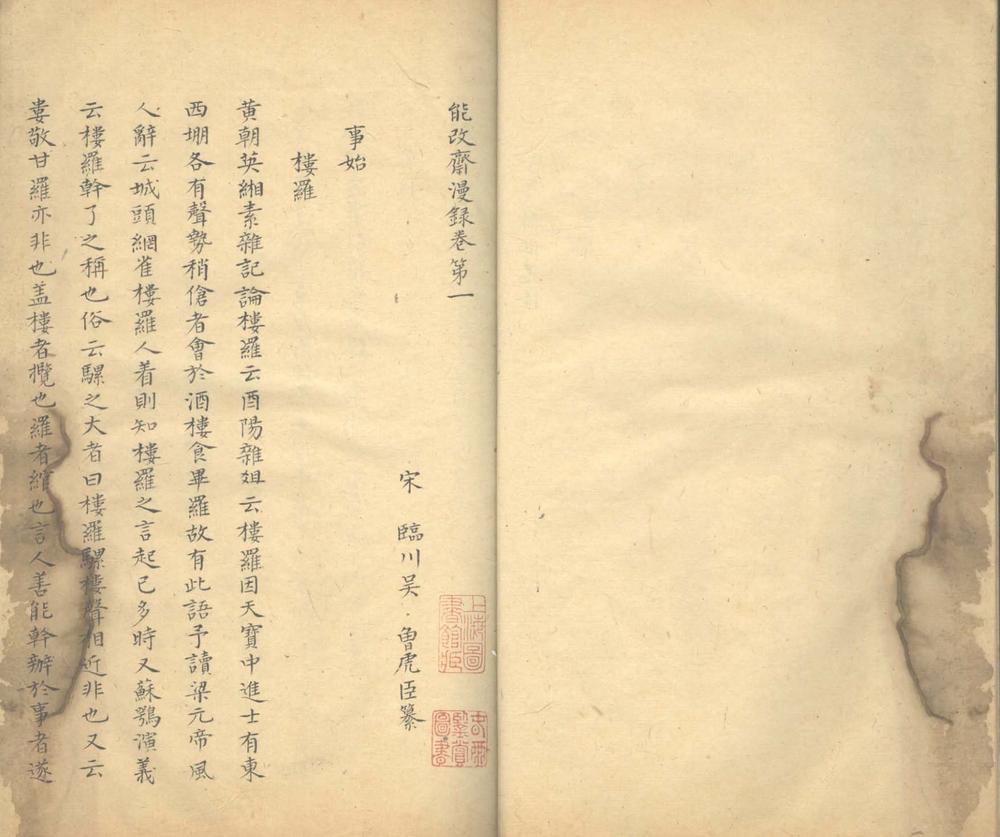 能改齋漫錄卷第一
宋 臨川吳 曾虎臣纂
事始
樓羅
黃朝英緗素雜記論樓羅云酉陽雜俎云樓羅因天寶中進士有東
西堋各有聲勢稍傖者會於酒樓食畢羅故有此語予讀梁元帝風
人辭云城頭網雀樓羅人着則知樓羅之言起已多時又蘇鶚演義
云樓羅幹了之稱也俗云騾之大者曰樓羅騾樓聲相近非也又云
婁敬甘羅亦非也盖樓者攬也羅者綰也言人善能幹辦於事者遂
上海圖書館藏